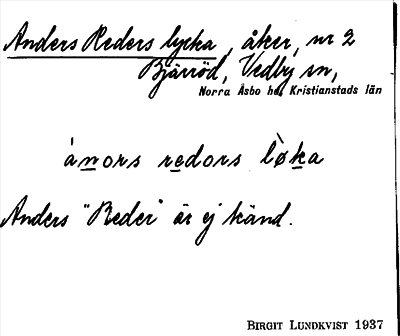 Anders Reders lycka, åker, nr 2
Bjärröd, Vedby sn,
Norra Åsbo hd, Kristianstads län
ánors redors lø̀ka
Anders "Reder" är ej känd.
BIRGIT LUNDKVIST 1937